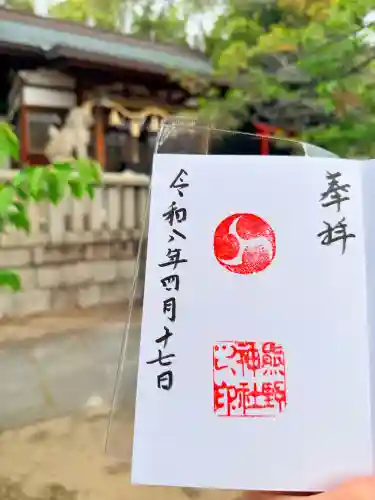 奉拝
熊野
神社
之印
令和八年四月十七日